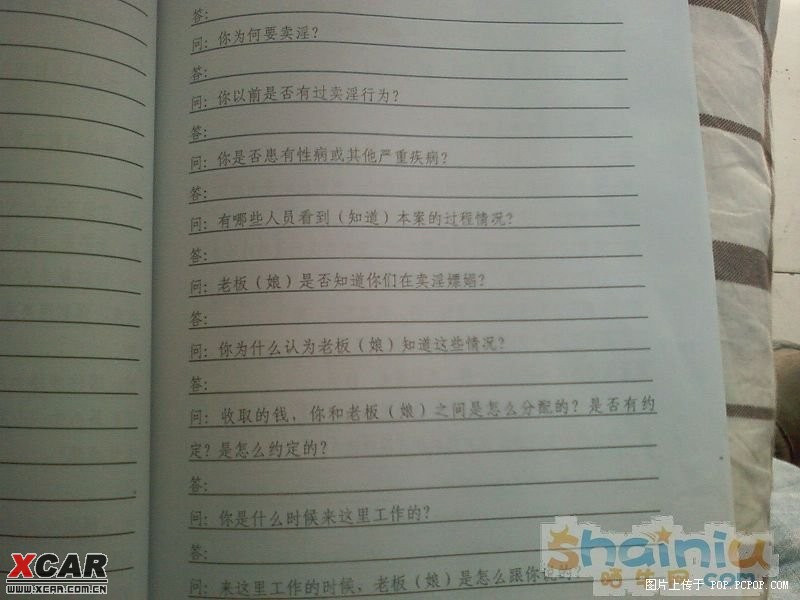 答:
问: 你为何要卖淫?
答:
问: 你以前是否有过卖淫行为?
答:
问: 你是否患有性病或其他严重疾病?
答:
问: 有哪些人员看到(知道)本案的过程情况?
答:
问: 老板(娘)是否知道你们在卖淫嫖娼?
答:
问: 你为什么认为老板(娘)知道这些情况?
答:
问: 收取的钱, 你和老板(娘)之间是怎么分配的? 是否有约
定? 是怎么约定的?
答:
问: 你是什么时候来这里工作的?
答:
问: 来这里工作的时候, 老板(娘)是怎么跟你
shainiu
.com
XCAR
WWW.XCAR.COM.CN
图片上传于 POP.PCPOP.COM